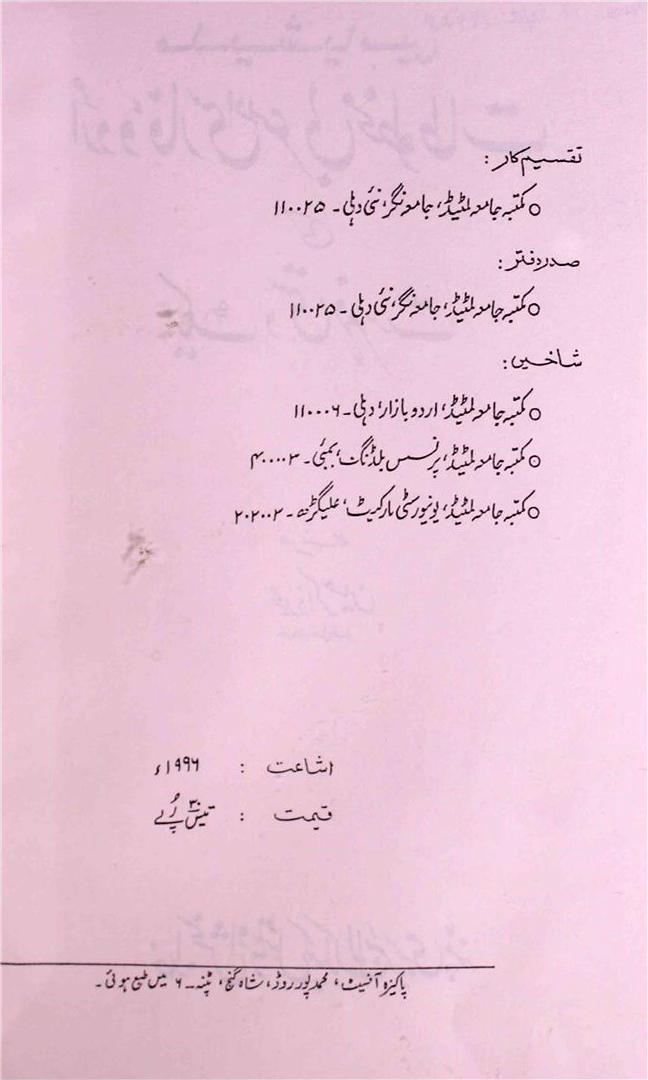 تقسیم کار :
○ مکتبہ جامعہ لمٹیڈ، جامعہ نگر، نئی دہلی ۔ ۱۱۰۰۲۵
صدر دفتر :
○ مکتبہ جامعہ لمٹیڈ، جامعہ نگر، نئی دہلی ۔ ۱۱۰۰۲۵
شاخیں :
○ مکتبہ جامعہ لمٹیڈ، اردو بازار، دہلی ۔ ۱۱۰۰۰۶
○ مکتبہ جامعہ لمٹیڈ، پرنسس بلڈنگ، بمبئی ۔ ۴۰۰۰۰۳
○ مکتبہ جامعہ لمٹیڈ، یونیورسٹی مارکیٹ، علیگڑھ ۔ ۲۰۲۰۰۲
اشاعت : ۱۹۹۶ء
قیمت : تیس ۳۰ رُپے
پاکیزہ آفسیٹ، محمد پور روڈ، شاہ گنج، پٹنہ ۔ ۶ میں طبع ہوئی ۔